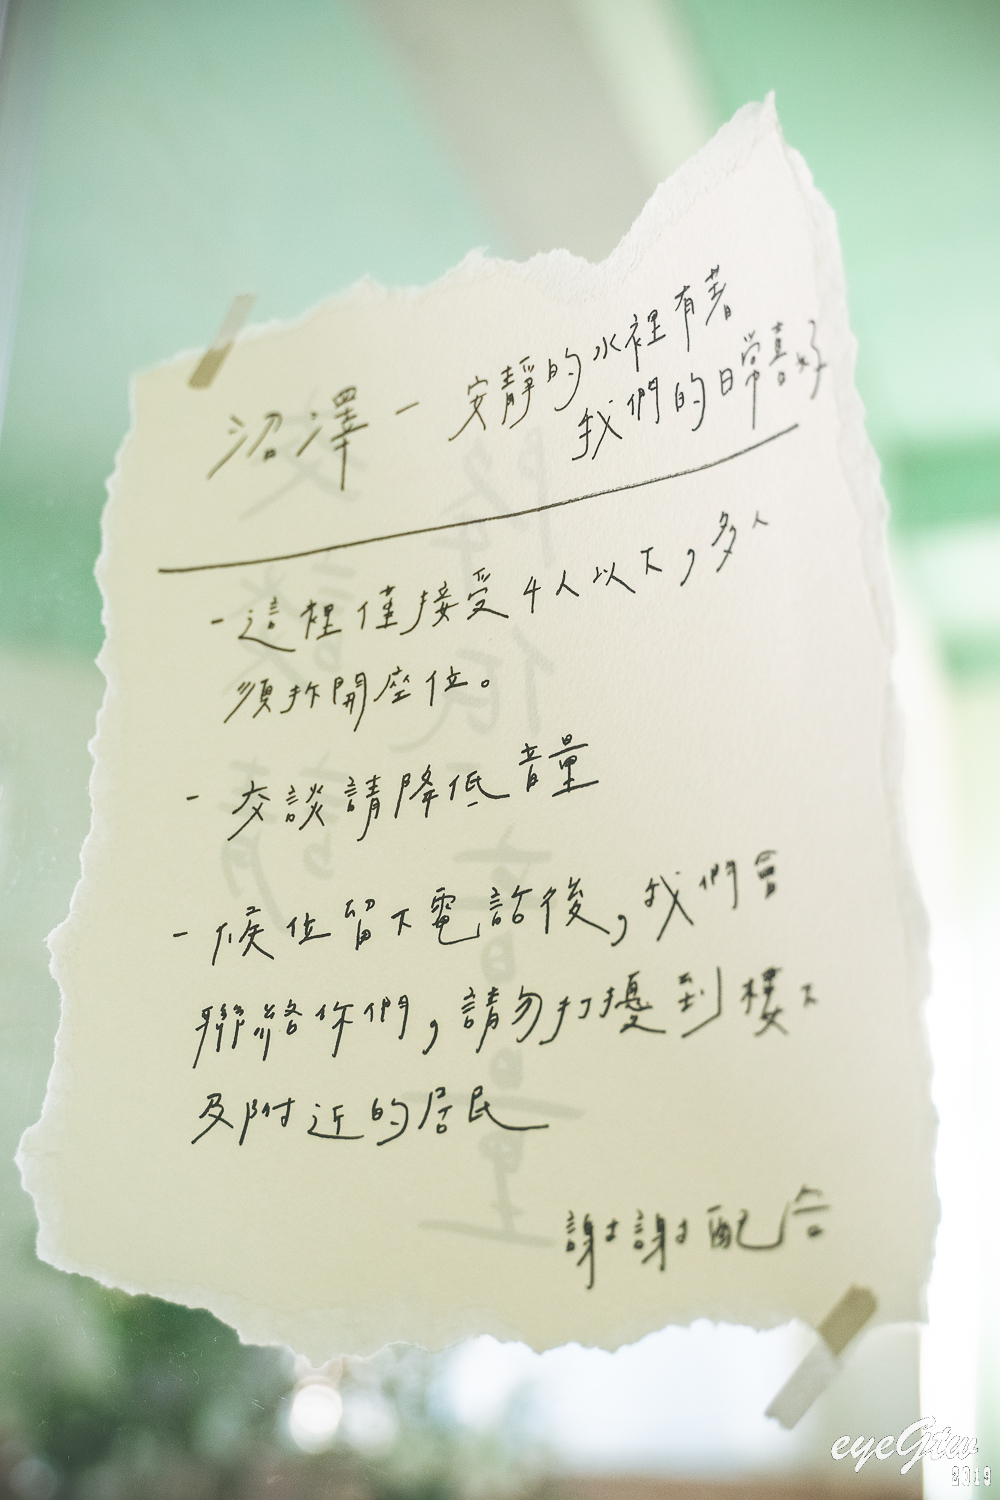 沼澤 - 安靜的水裡有著
我們的日常喜好
- 這裡僅接受4人以下,多人
須拆開座位。
- 交談請降低音量
- 候位留下電話後,我們會
聯絡你們,請勿打擾到樓下
及附近的居民
謝謝配合
eyeGtw
2019